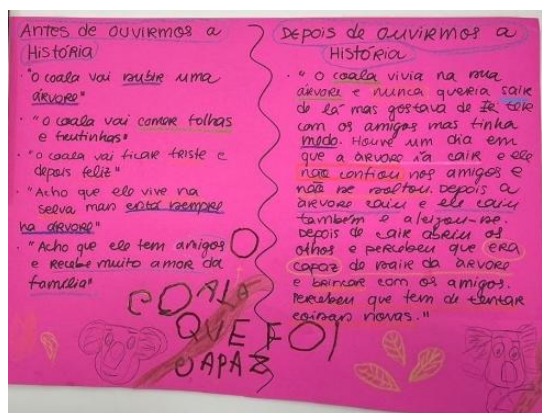 Antes de ouvirmos a
História
· "O coala vai subir uma
árvore"
· "O coala vai comer folhas
e frutinhas"
· "O coala vai ficar triste e
depois feliz"
· "Acho que ele vive na
selva mas está sempre
na árvore"
· "Acho que ele tem amigos
e recebe muito amor da
família"
Depois de ouvirmos a
História
· "O coala vivia na sua
árvore e nunca queria sair
de lá mas gostava de
com os amigos mas tinha
medo. Houve um dia em
que a árvore ia cair e ele
não confiou nos amigos e
não se soltou. Depois a
árvore caiu e ele caiu
também e aleijou-se.
Depois de cair abriu os
olhos e percebeu que era
capaz de sair da árvore
e brincar com os amigos.
Percebeu que tem de tentar
coisas novas."
O
COALA
QUE FOI
CAPAZ